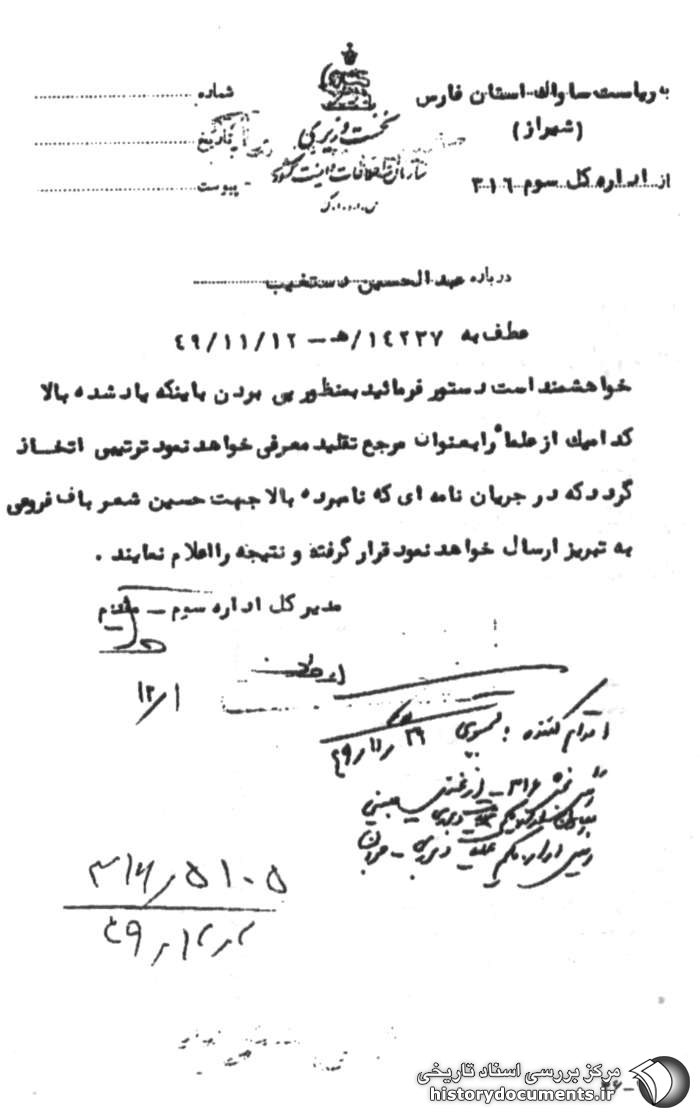 به ریاست ساواک استان فارس
(شیراز)
از اداره کل سوم ۳۱۶
نخست وزیری
سازمان اطلاعات و امنیت کشور
س.ا.و.ا.ک
شماره
تاریخ
پیوست
درباره عبدالحسین دستغیب
عطف به ۱۴۲۳۷/هـ – ۴۹/۱۱/۱۲
خواهشمند است دستور فرمائید بمنظور پی بردن باینکه یاد شده بالا
کدامیک از علماء را بعنوان مرجع تقلید معرفی خواهد نمود ترتیبی اتخاذ
گردد که در جریان نامه ای که نامبرده بالا جهت حسین شعر باف فروعی
به تبریز ارسال خواهد نمود قرار گرفته و نتیجه را اعلام نمایند .
مدیر کل اداره سوم – مقدم
۱۲/۱
اقدام کننده :
۴۹/۱۱/۲۹
۳۱۶
۳۱۶/۵۱۰۵
۴۹/۱۲/۲
مرکز بررسی اسناد تاریخی
historydocuments.ir